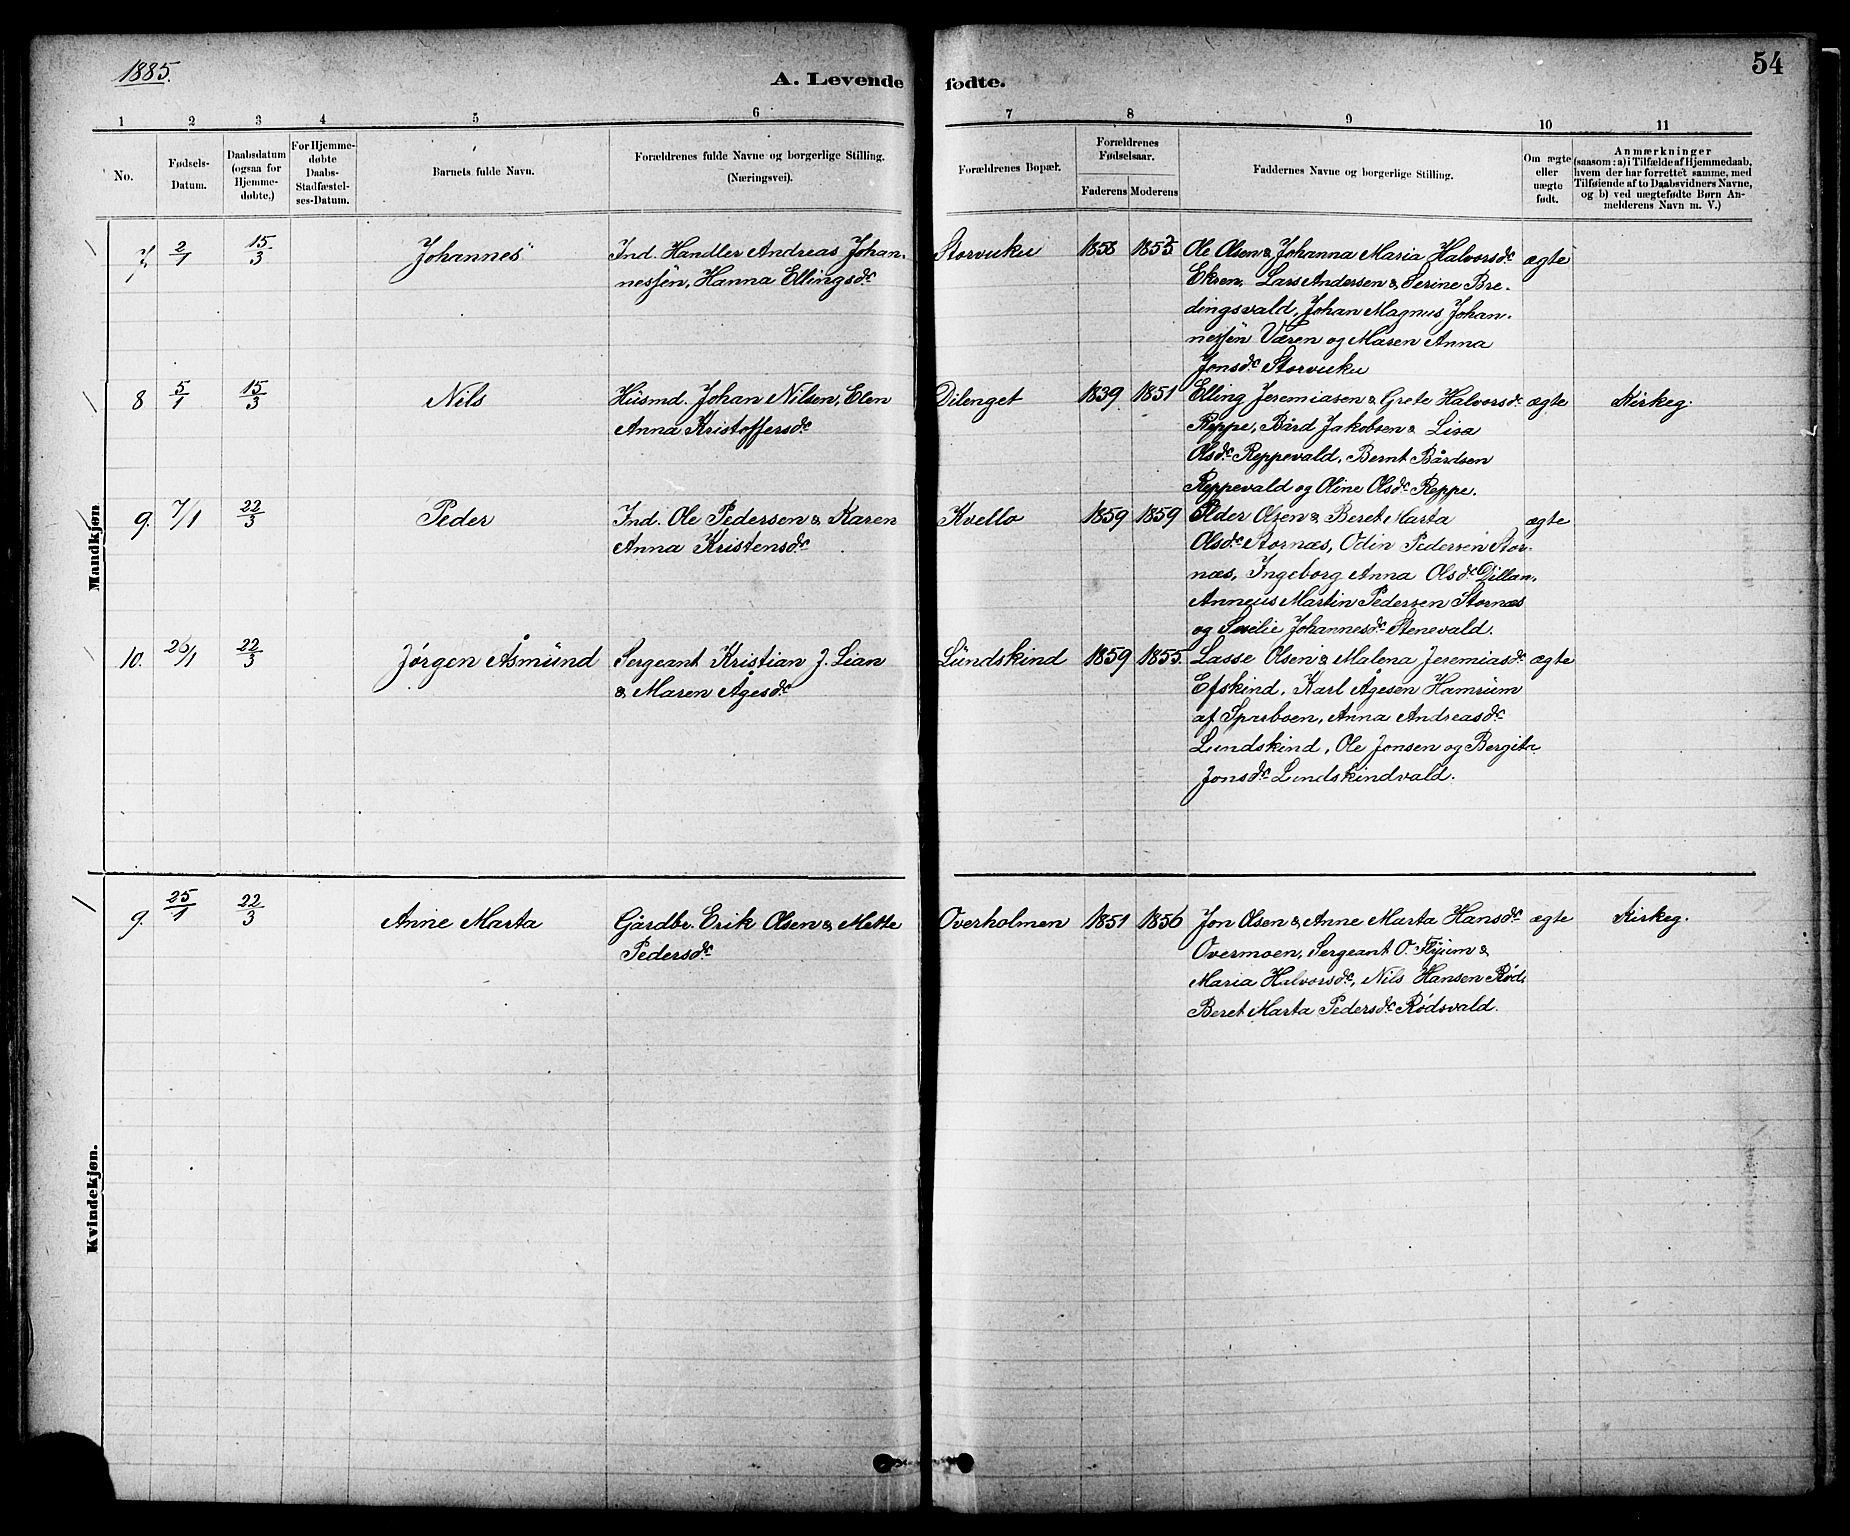 1885.
A. Levende fødte.
54
1 2 3 4 5 6 7 8 9 10 11
No.
Fødsels-
Datum.
Daabsdatum
(ogsaa for
Hjemme-
døbte.)
For Hjemme-
døbte
Daabs-
Stadfæstel-
ses-Datum.
Barnets fulde Navn.
Forældrenes fulde Navne og borgerlige Stilling.
(Næringsvei).
Forældrenes Bopæl.
Forældrenes
Fødselsaar.
Faderens Moderens
Faddernes Navne og borgerlige Stilling.
Om ægte
eller
uægte
født.
Anmærkninger
(saasom: a) i Tilfælde af Hjemmedaab,
hvem der har forrettet samme, med
Tilføiende af to Daabsvidners Navne,
og b) ved uægtefødte Børn An-
melderens Navn m. V.)
Mandkjøn
7. 2/1 15/3 Johannes Ind. Handler Andreas Johan- Storvuku 1858 1855 Ole Olsen & Johanna Maria Halvorsdr. ægte
nessen, Hanna Ellingsdr. Ekren, Lars Andersen & Serine Bre-
dingsvald, Johan Magnus Johan-
nessen Væren og Maren Anna
Jonsdr. Storvuku
8 5/1 15/3 Nils Husmd. Johan Nilsen, Elen Dilenget 1839 1851 Elling Jeremiasen & Grete Halvorsdr. ægte Kirkeg.
Anna Kristoffersdr. Reppe, Bård Jakobsen & Lisa
Olsdr. Reppevald, Bernt Bårdsen
Reppevald og Oline Olsdr. Reppe.
9. 7/1 22/3 Peder Ind. Ole Pedersen & Karen Kvello 1859 1859 Peder Olsen & Beret Marta ægte
Anna Kristensdr. Olsdr. Stornæs, Odin Pedersen Stor-
næs, Ingeborg Anna Olsdr. Dillan,
Anneus Martin Pedersen Stornæs
og Johannesdr. Stenevald.
10. 26/1 22/3 Jørgen Åsmund Sergeant Kristian J. Lian Lundskind 1859 1855. Lasse Olsen & Malena Jeremiasdr. ægte
& Maren Ågesdr. Efskind, Karl Ågesen Hamrum
af Sparboen, Anna Andreasdr.
Lundskind, Ole Jonsen og Bergita
Jonsdr. Lundskindvald.
Kvindekjøn.
9. 25/1 22/3 Anne Marta Gårdbr. Erik Olsen & Mette Overholmen 1851 1856 Jon Olsen & Anne Marta Hansdr. ægte Kirkeg.
Pedersdr. Overmoen, Sergeant O. Flyum &
Maria Halvorsdr., Nils Hansen Rød,
Beret Marta Pedersdr. Rødsvald.